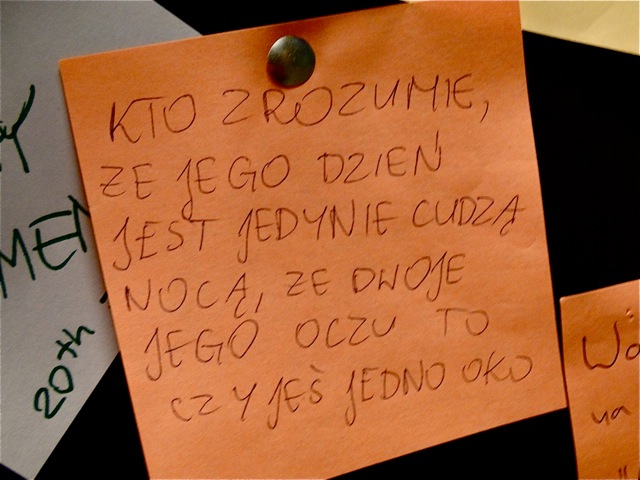 KTO ZROZUMIE,
ZE JEGO DZIEŃ
JEST JEDYNIE CUDZĄ
NOCĄ, ZE DWOJE
JEGO OCZU TO
CZYJEŚ JEDNO OKO
20th